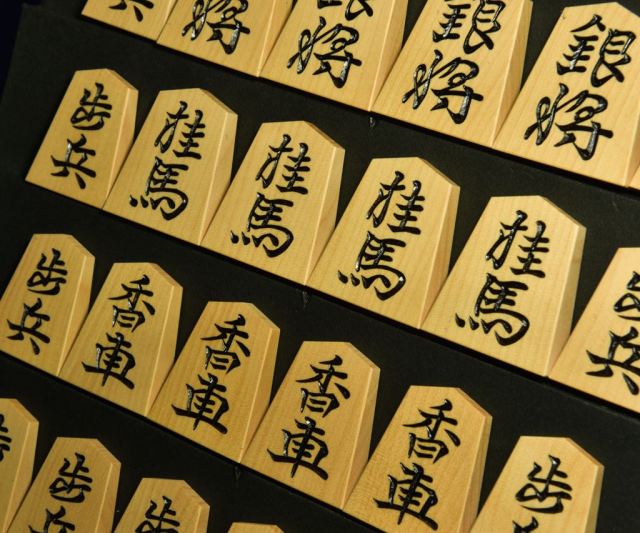 銀将
銀将
銀将
銀将
歩兵
桂馬
桂馬
桂馬
桂馬
歩兵
歩兵
香車
香車
香車
香車
歩兵
歩兵
歩